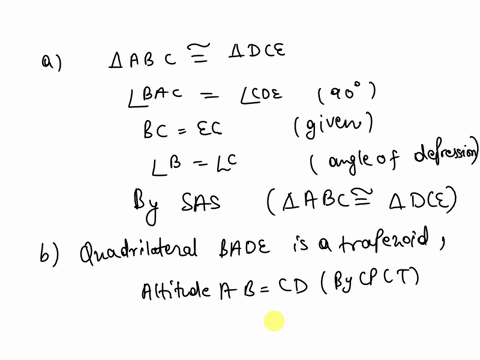 a) △ABC ≅ △DCE
∠BAC = ∠CDE (90°)
BC = EC (given)
∠B = ∠C (angle of depression)
By SAS (△ABC ≅ △DCE)
b) Quadrilateral BADE is a trapezoid,
Altitude AB = CD (By CPCT)